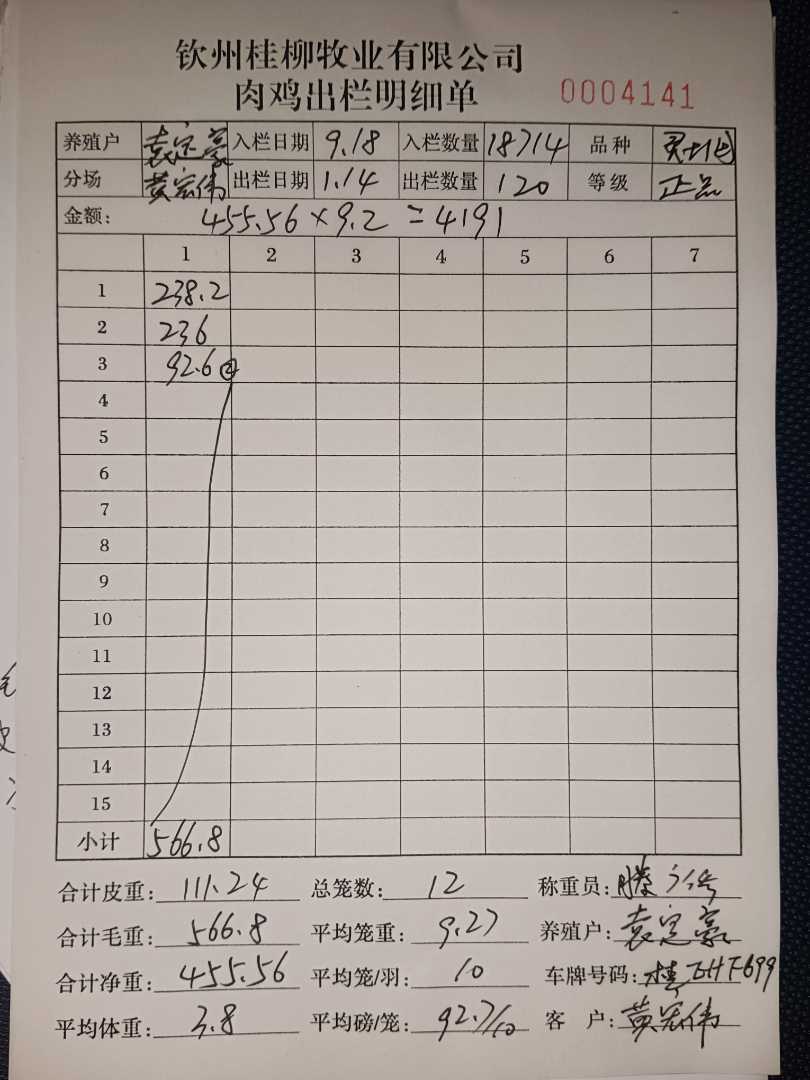 钦州桂柳牧业有限公司
肉鸡出栏明细单 0004141
养殖户 袁定豪 入栏日期 9.18 入栏数量 18714 品种
分场 黄宏伟 出栏日期 1.14 出栏数量 120 等级 正品
金额: 455.56×9.2=4191
1 2 3 4 5 6 7
1 238.2
2 236
3 92.6 ②
4
5
6
7
8
9
10
11
12
13
14
15
小计 566.8
合计皮重: 111.24 总笼数: 12 称重员: 滕
合计毛重: 566.8 平均笼重: 9.27 养殖户: 袁定豪
合计净重: 455.56 平均笼/羽: 10 车牌号码: 桂
平均体重: 3.8 平均磅/笼: 92.7/10 客 户: 黄宏伟